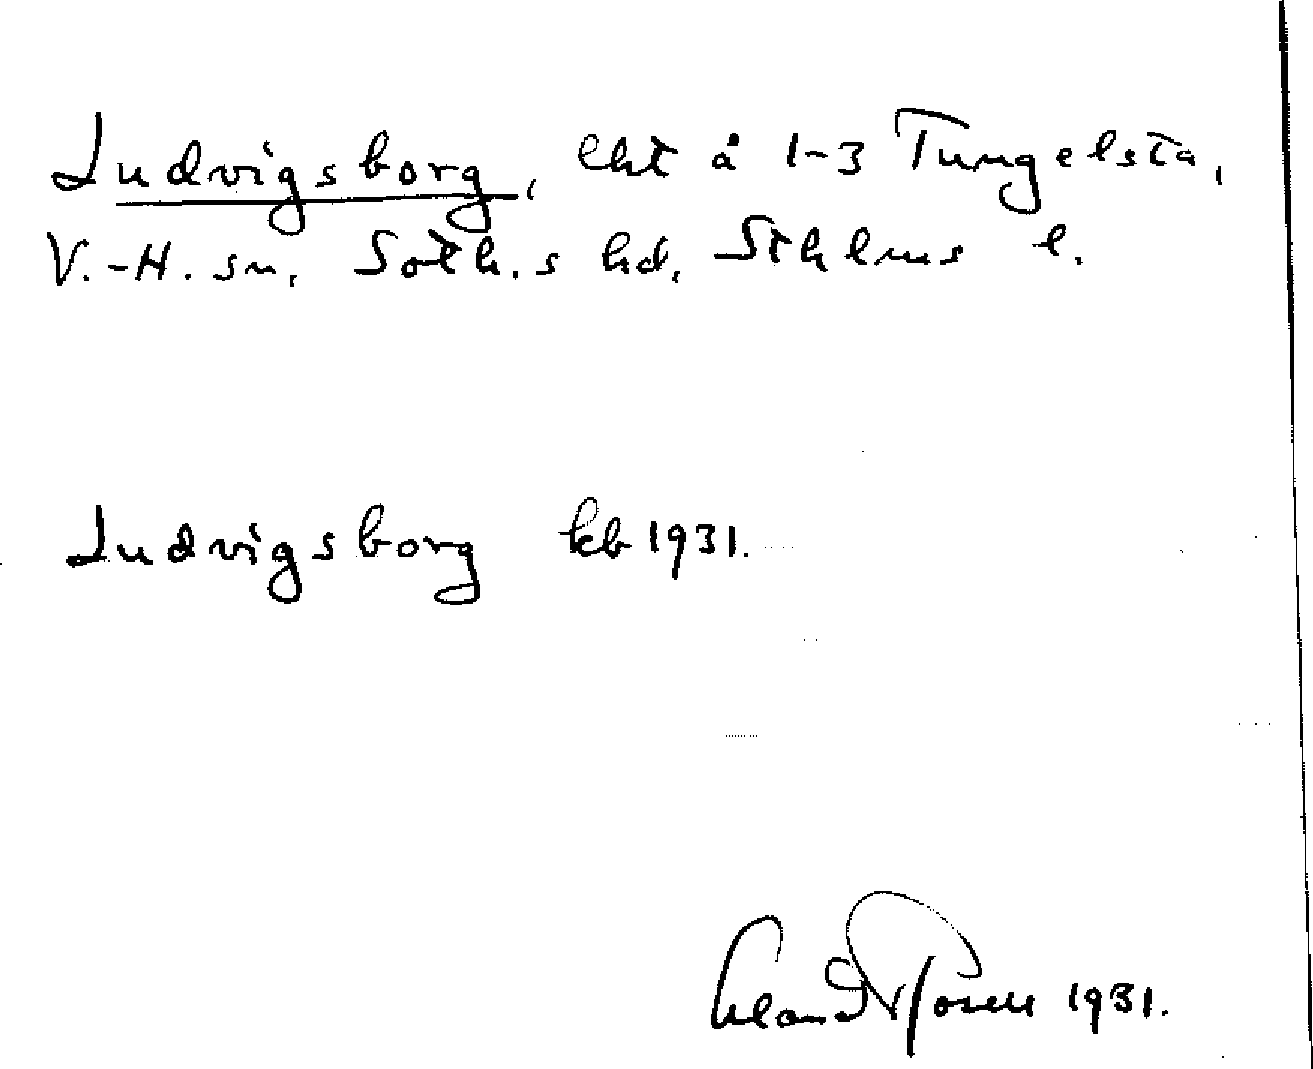 Ludvigsborg, lht å 1-3 Tungelsta,
V.-H. sn, Soth.s hd, Sthlms l.
Ludvigsborg kb 1931.
1931.